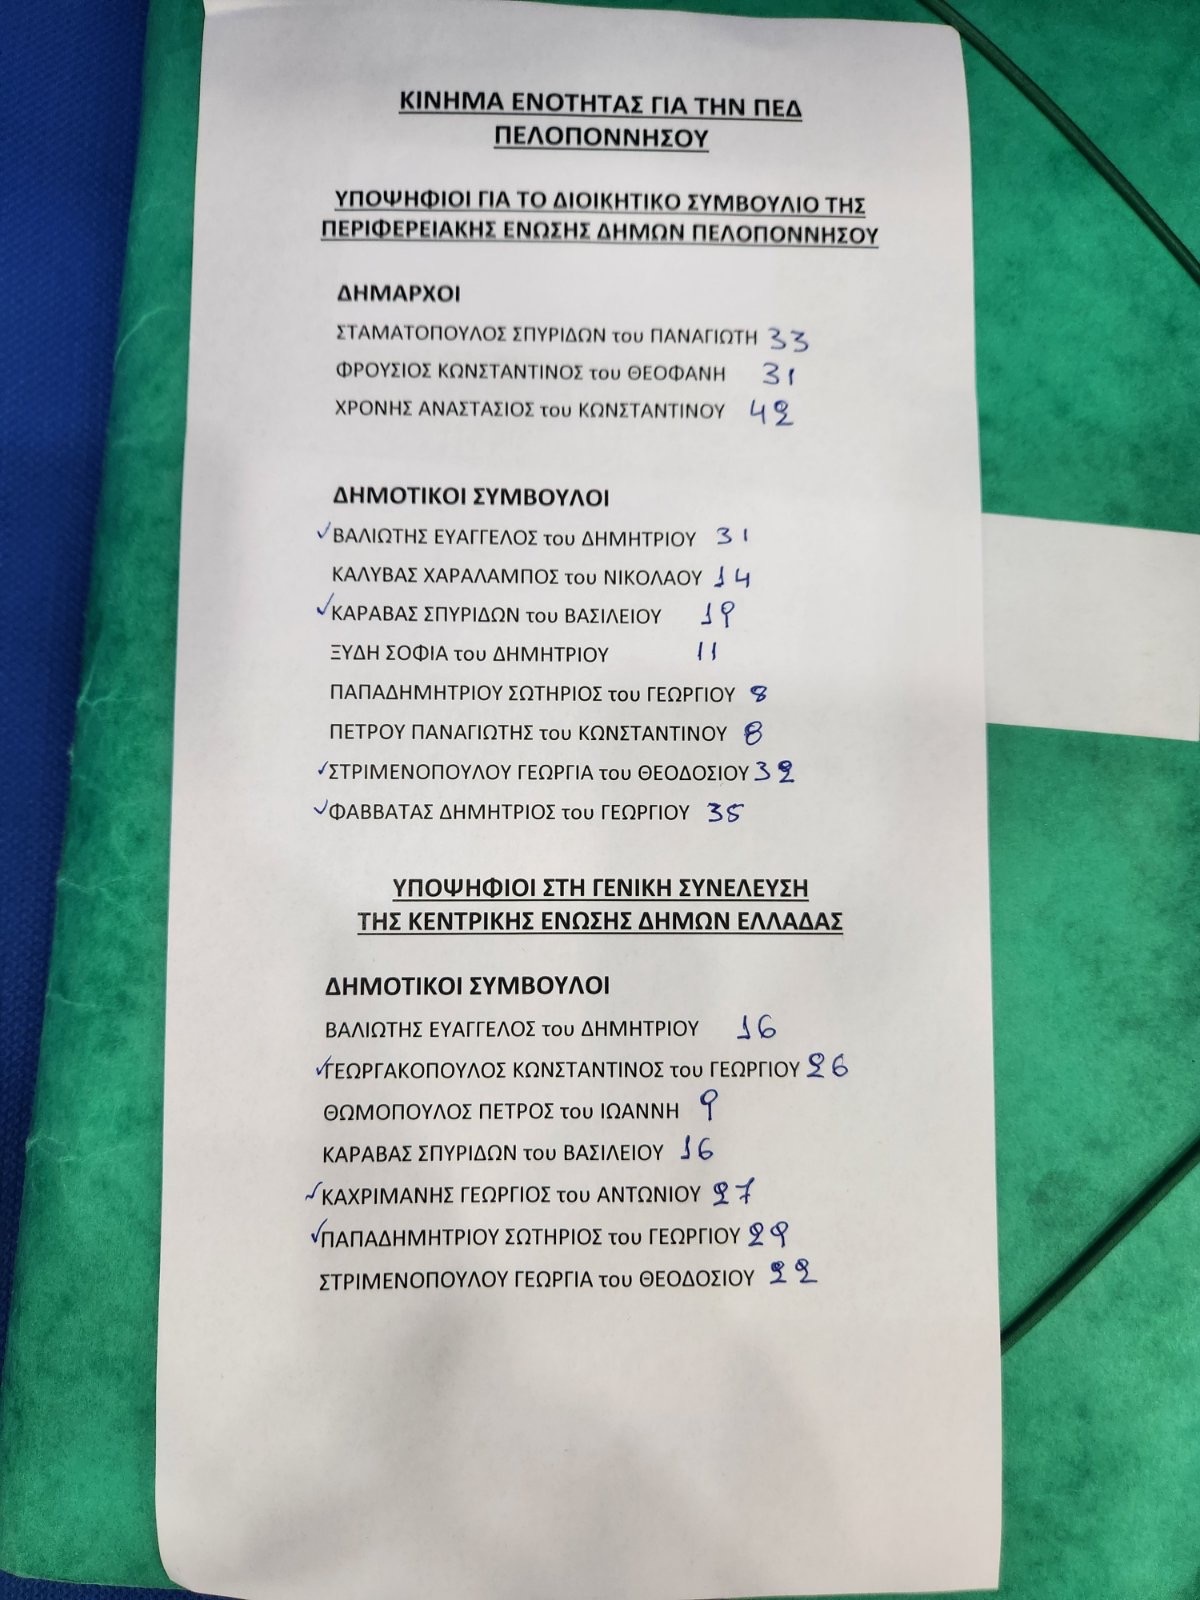 ΚΙΝΗΜΑ ΕΝΟΤΗΤΑΣ ΓΙΑ ΤΗΝ ΠΕΔ
ΠΕΛΟΠΟΝΝΗΣΟΥ
ΥΠΟΨΗΦΙΟΙ ΓΙΑ ΤΟ ΔΙΟΙΚΗΤΙΚΟ ΣΥΜΒΟΥΛΙΟ ΤΗΣ
ΠΕΡΙΦΕΡΕΙΑΚΗΣ ΕΝΩΣΗΣ ΔΗΜΩΝ ΠΕΛΟΠΟΝΝΗΣΟΥ
ΔΗΜΑΡΧΟΙ
ΣΤΑΜΑΤΟΠΟΥΛΟΣ ΣΠΥΡΙΔΩΝ του ΠΑΝΑΓΙΩΤΗ 33
ΦΡΟΥΣΙΟΣ ΚΩΝΣΤΑΝΤΙΝΟΣ του ΘΕΟΦΑΝΗ 31
ΧΡΟΝΗΣ ΑΝΑΣΤΑΣΙΟΣ του ΚΩΝΣΤΑΝΤΙΝΟΥ 42
ΔΗΜΟΤΙΚΟΙ ΣΥΜΒΟΥΛΟΙ
✓ΒΑΛΙΩΤΗΣ ΕΥΑΓΓΕΛΟΣ του ΔΗΜΗΤΡΙΟΥ 31
ΚΑΛΥΒΑΣ ΧΑΡΑΛΑΜΠΟΣ του ΝΙΚΟΛΑΟΥ 14
✓ΚΑΡΑΒΑΣ ΣΠΥΡΙΔΩΝ του ΒΑΣΙΛΕΙΟΥ 19
ΞΥΔΗ ΣΟΦΙΑ του ΔΗΜΗΤΡΙΟΥ 11
ΠΑΠΑΔΗΜΗΤΡΙΟΥ ΣΩΤΗΡΙΟΣ του ΓΕΩΡΓΙΟΥ 8
ΠΕΤΡΟΥ ΠΑΝΑΓΙΩΤΗΣ του ΚΩΝΣΤΑΝΤΙΝΟΥ 8
✓ΣΤΡΙΜΕΝΟΠΟΥΛΟΥ ΓΕΩΡΓΙΑ του ΘΕΟΔΟΣΙΟΥ 32
✓ΦΑΒΒΑΤΑΣ ΔΗΜΗΤΡΙΟΣ του ΓΕΩΡΓΙΟΥ 35
ΥΠΟΨΗΦΙΟΙ ΣΤΗ ΓΕΝΙΚΗ ΣΥΝΕΛΕΥΣΗ
ΤΗΣ ΚΕΝΤΡΙΚΗΣ ΕΝΩΣΗΣ ΔΗΜΩΝ ΕΛΛΑΔΑΣ
ΔΗΜΟΤΙΚΟΙ ΣΥΜΒΟΥΛΟΙ
ΒΑΛΙΩΤΗΣ ΕΥΑΓΓΕΛΟΣ του ΔΗΜΗΤΡΙΟΥ 16
✓ΓΕΩΡΓΑΚΟΠΟΥΛΟΣ ΚΩΝΣΤΑΝΤΙΝΟΣ του ΓΕΩΡΓΙΟΥ 26
ΘΩΜΟΠΟΥΛΟΣ ΠΕΤΡΟΣ του ΙΩΑΝΝΗ 9
ΚΑΡΑΒΑΣ ΣΠΥΡΙΔΩΝ του ΒΑΣΙΛΕΙΟΥ 16
✓ΚΑΧΡΙΜΑΝΗΣ ΓΕΩΡΓΙΟΣ του ΑΝΤΩΝΙΟΥ 27
✓ΠΑΠΑΔΗΜΗΤΡΙΟΥ ΣΩΤΗΡΙΟΣ του ΓΕΩΡΓΙΟΥ 29
ΣΤΡΙΜΕΝΟΠΟΥΛΟΥ ΓΕΩΡΓΙΑ του ΘΕΟΔΟΣΙΟΥ 22